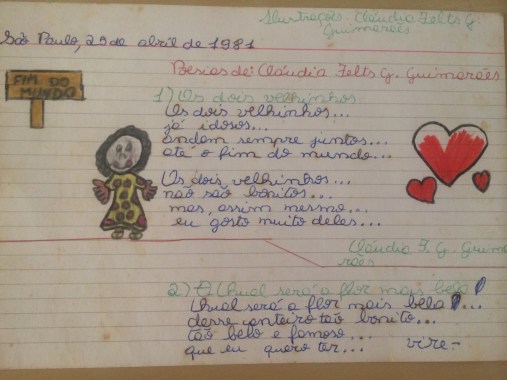 Ilustrações: Cláudia Felts G.
Guimarães
São Paulo, 25 de abril de 1981
Poesias de: Cláudia Felts G. Guimarães
FIM DO
MUNDO
1) Os dois velhinhos
Os dois velhinhos...
já idosos...
andam sempre juntos...
até o fim do mundo...
Os dois velhinhos...
não são bonitos...
mas, assim mesmo...
eu gosto muito deles...
Cláudia F. G. Guima-
rães
2) Qual será a flor mais bela
Qual será a flor mais bela...
desse canteiro tão bonito...
tão belo e famoso...
que eu quero ter... vire-